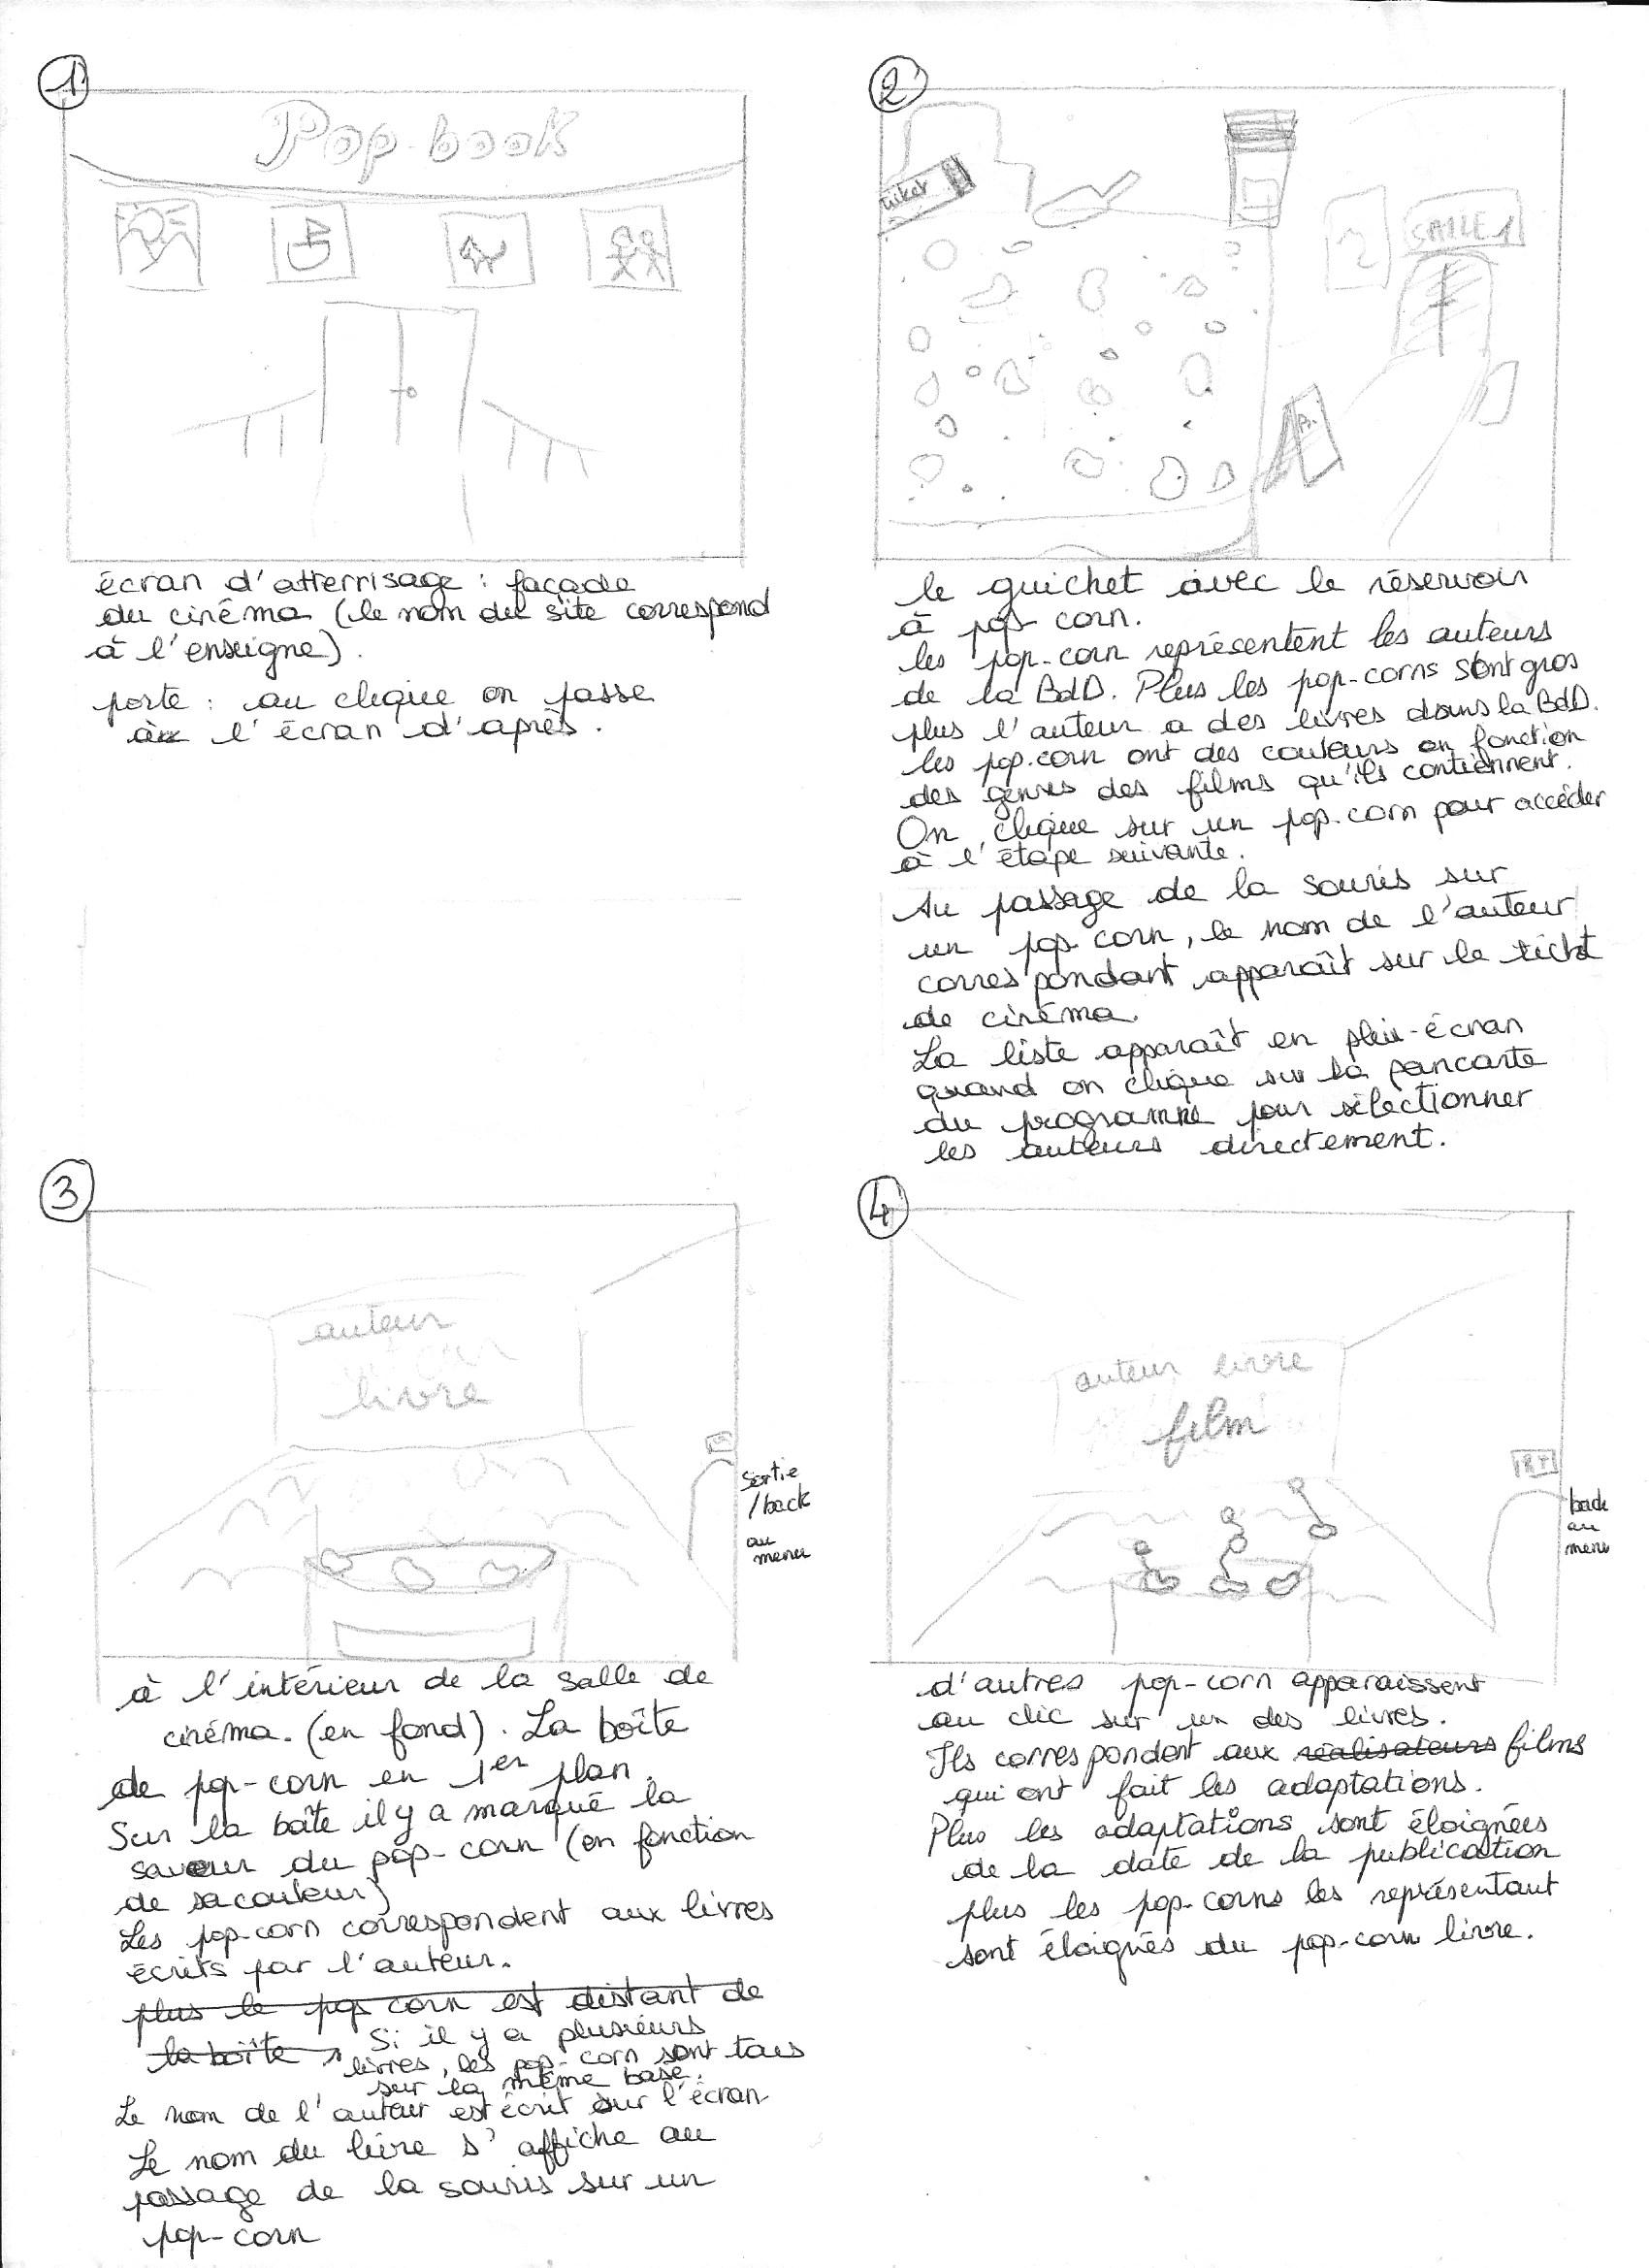 1
Pop-book
écran d'atterrisage : façade
du cinéma (le nom du site correspond
à l'enseigne).
porte : au clique on passe
à l'écran d'après.
2
ticket
SALLE 1
Pr.
le guichet avec le réservoir
à pop corn.
les pop-corn représentent les auteurs
de la BdD. Plus les pop-corns sont gros
plus l'auteur a des livres dans la BdD.
les pop-corn ont des couleurs en fonction
des genres des films qu'ils contiennent.
On clique sur un pop-corn pour accéder
à l'étape suivante.
Au passage de la souris sur
un pop corn, le nom de l'auteur
correspondant apparaît sur le ticket
de cinéma.
La liste apparaît en plein-écran
quand on clique sur la pancarte
du programme pour sélectionner
les auteurs directement.
3
auteur
livre
Sortie
/back
au
menu
à l'intérieur de la salle de
cinéma. (en fond). La boîte
de pop-corn en 1er plan.
Sur la boîte il y a marqué la
saveur du pop-corn (en fonction
de sa couleur)
Les pop-corn correspondent aux livres
écrits par l'auteur.
plus le pop corn est distant de
la boîte Si il y a plusieurs
livres, les pop-corn sont tous
sur la même base.
Le nom de l'auteur est écrit sur l'écran
Le nom du livre s'affiche au
passage de la souris sur un
pop-corn
4
auteur livre
film
back
au
menu
d'autres pop-corn apparaissent
au clic sur un des livres.
Ils correspondent aux réalisateurs films
qui ont fait les adaptations.
Plus les adaptations sont éloignées
de la date de la publication
plus les pop-corns les représentant
sont éloignés du pop-corn livre.